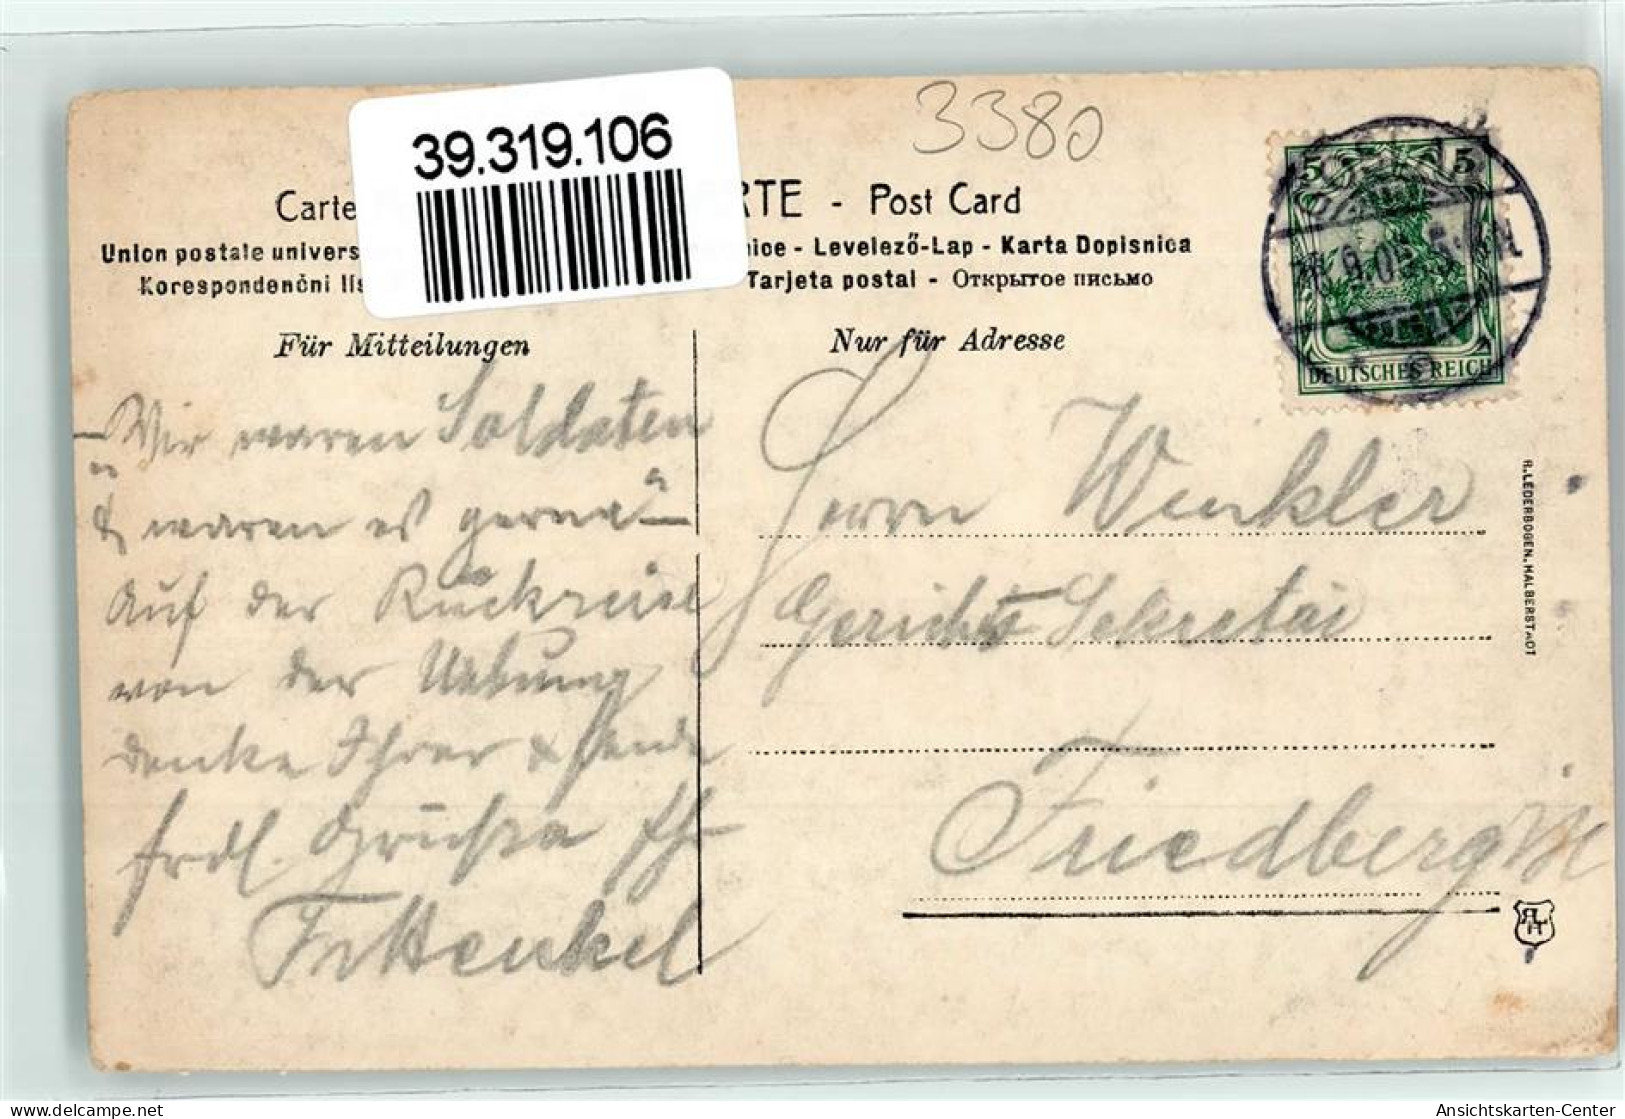 3380
39.319.106
Carte RTE - Post Card
Union postale univers nice - Levelező-Lap - Karta Dopisnica
Korespondenční lis Tarjeta postal - Открытое письмо
Für Mitteilungen
Nur für Adresse
5 5
DEUTSCHES REICH
„Wir waren Soldaten
& waren es gerne“ —
Auf der Rückreise
von der Uebung
denke Ihrer & sende
frdl. Grüsse Ihr
Herrn Winkler
Gerichts Sekretär
Friedberg
R. LEDERBOGEN, HALBERSTADT
RLH
Ansichtskarten-Center
delcampe.net